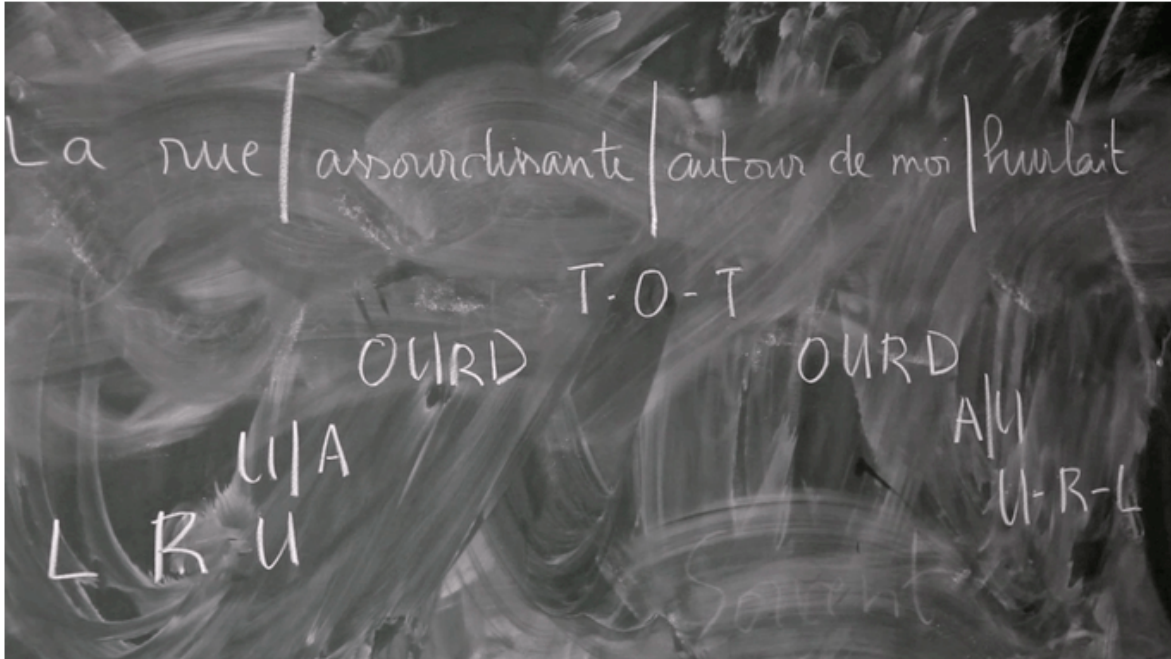 La rue | assourdissante | autour de moi | hurlait
T-O-T
OURD OURD
U|A A|U
L R U U-R-L
Souvent